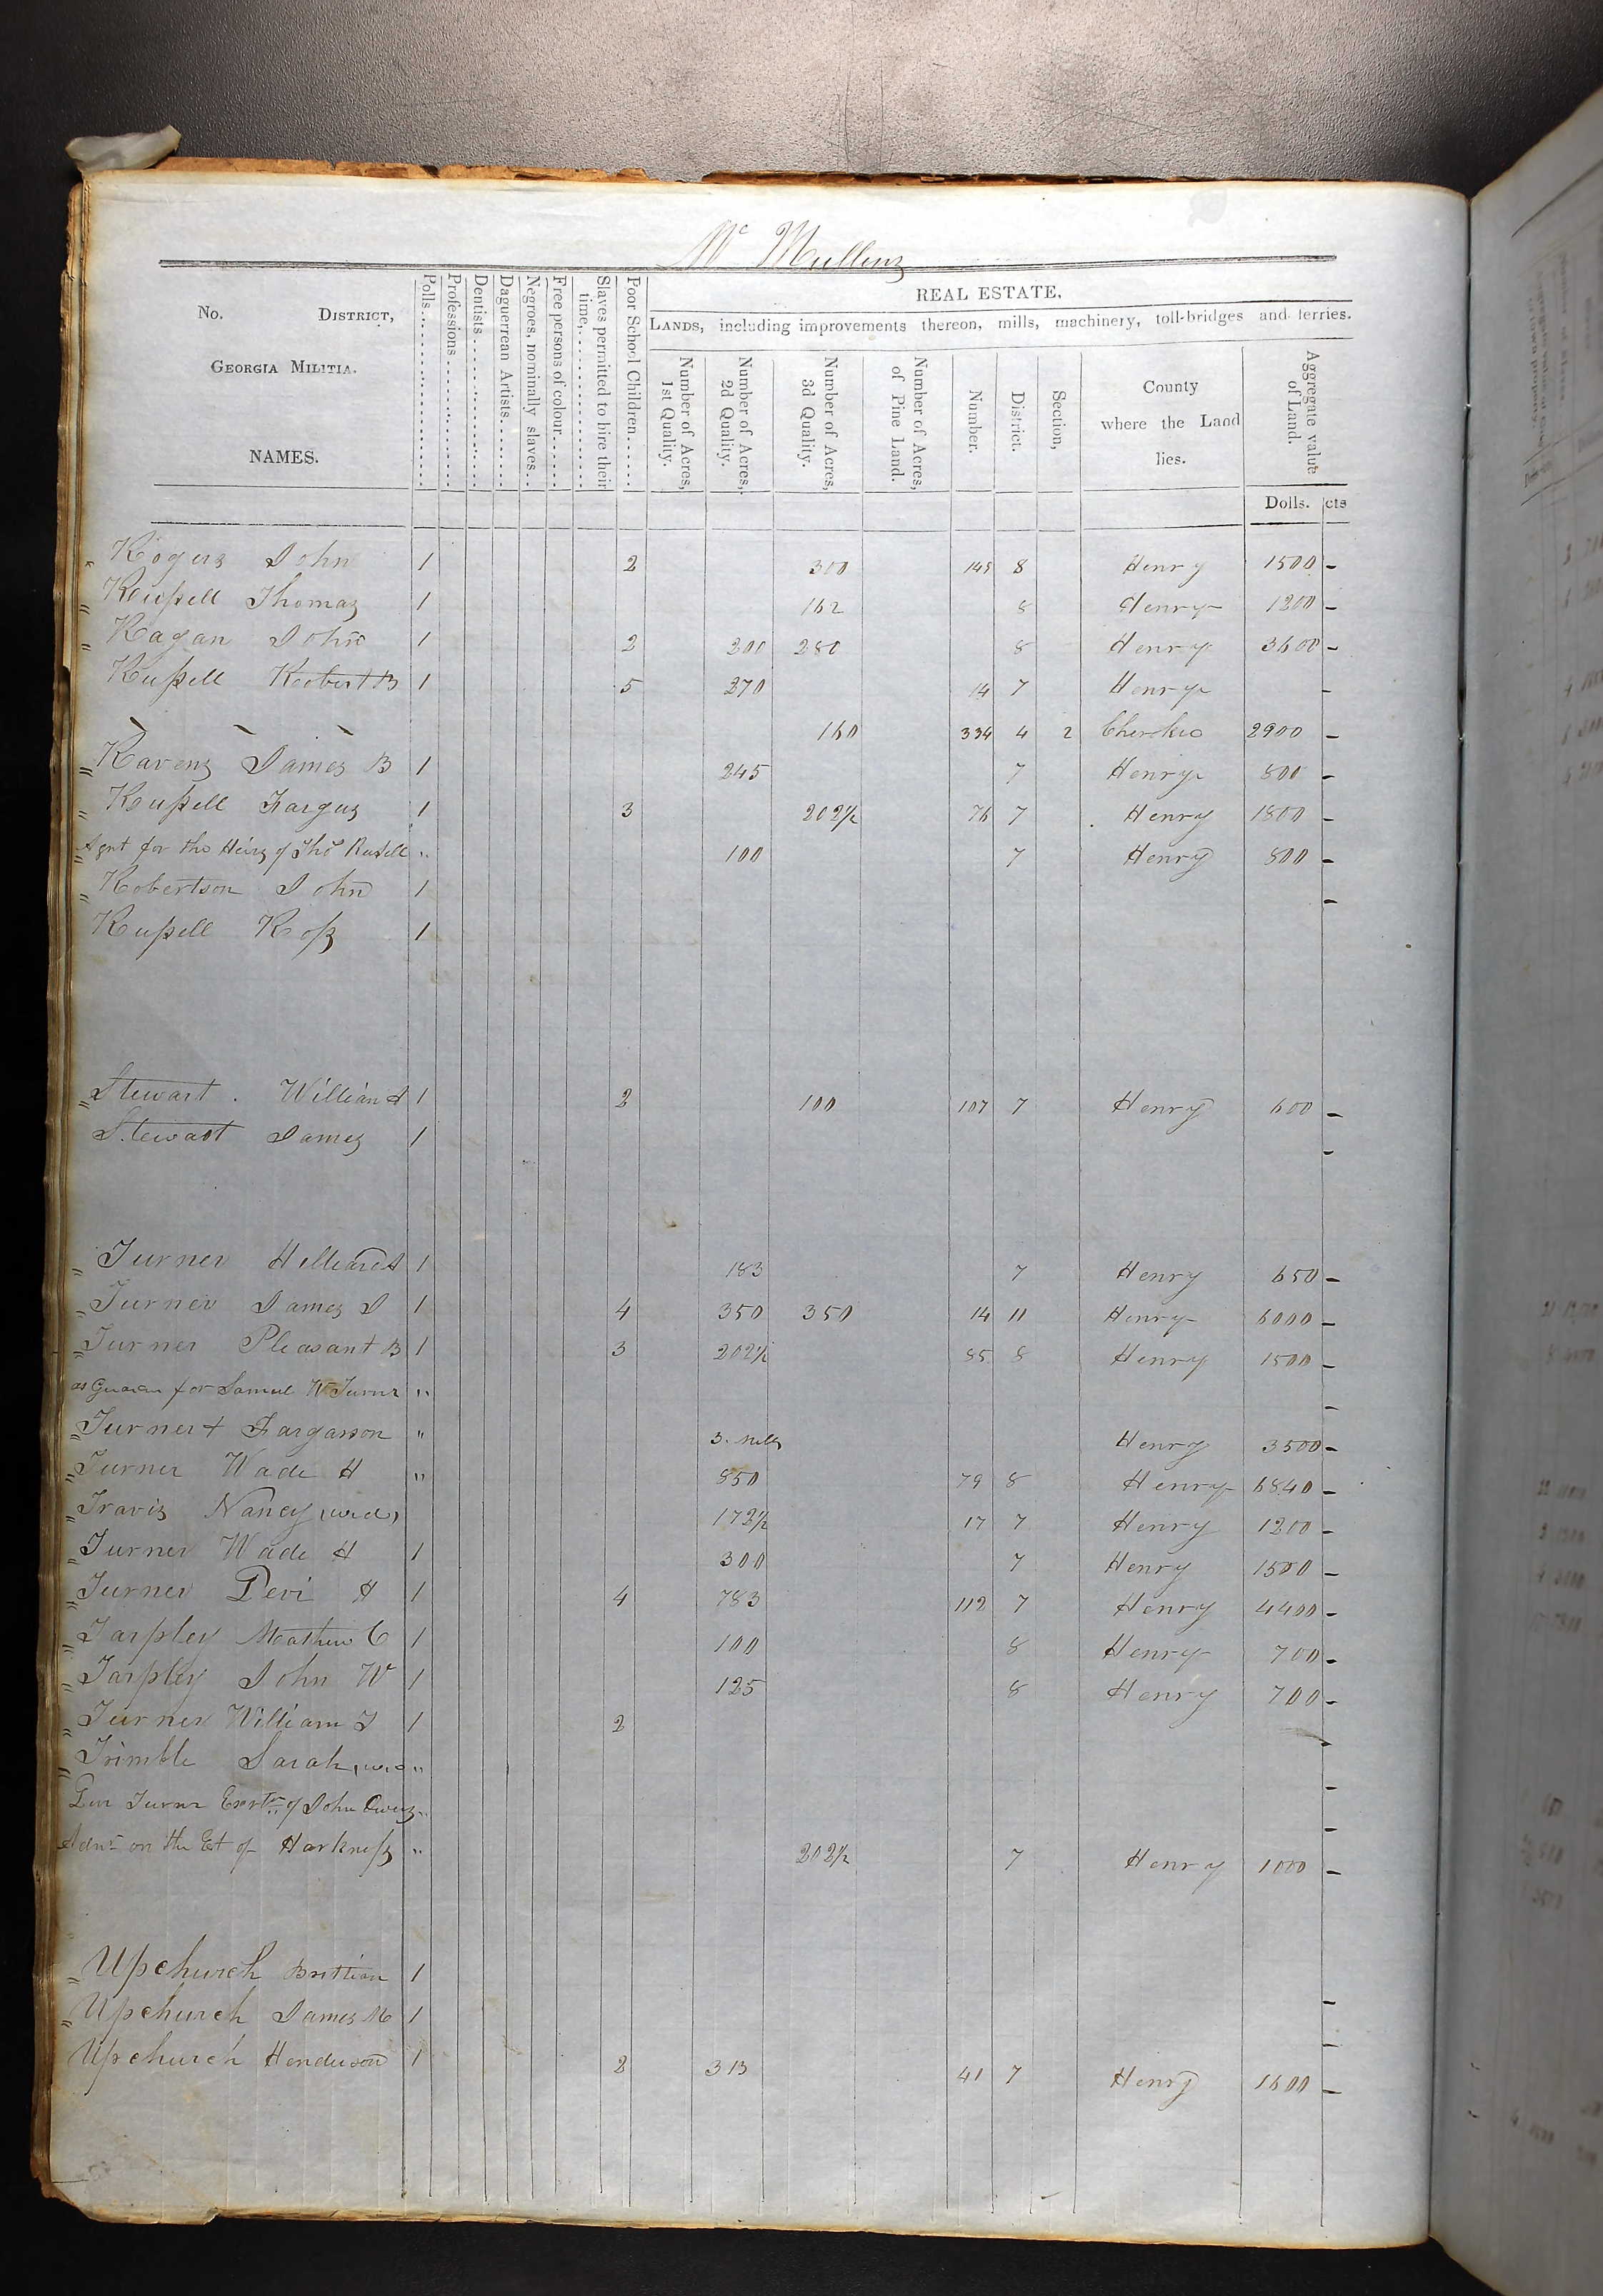 Mc Mullens
No. DISTRICT,
GEORGIA MILITIA.
NAMES.
Polls
Professions
Dentists
Daguerrean Artists
Negroes, nominally slaves
Free persons of colour
Slaves permitted to hire their time,
Poor School Children
REAL ESTATE.
LANDS, including improvements thereon, mills, machinery, toll-bridges and ferries.
Number of Acres, 1st Quality.
Number of Acres, 2d Quality.
Number of Acres, 3d Quality.
Number of Acres, of Pine Land.
Number.
District.
Section,
County where the Land lies.
Aggregate value of Land.
Dolls. cts
Rogers John 1 2 300 8 Henry 1500 –
Russell Thomas 1 162 8 Henry 1200 –
Ragan John 1 2 200 280 8 Henry 3600 –
Russell Robert B 1 5 270 14 7 Henry –
" " " 160 334 4 2 2900 –
" Ravens James B 1 245 7 Henry 800 –
" Russell Fargus 1 3 202½ 76 7 Henry 1800 –
" Agnt for the Heirs of Thos Russell " 100 7 Henry 800 –
" Robertson John 1 –
Russell Ross 1
" Stewart William A 1 2 100 107 7 Henry 600 –
Stewart James 1 –
" Turner 1 183 7 Henry 650 –
" Turner James J 1 4 350 350 14 11 Henry 6000 –
" Turner Pleasant B 1 3 202½ 85 8 Henry 1500 –
as for Samuel W Turner " –
" Turner & Fargason " 3. Mills Henry 3500 –
" Turner Wade H " 850 79 8 Henry 6840 –
" Travis Nancy (wid) 172½ 17 7 Henry 1200 –
" Turner Wade H 1 300 7 Henry 1500 –
" Turner Levi H 1 4 783 112 7 Henry 4400 –
" Tarpley Mathew C 1 100 8 Henry 700 –
" Tarpley John W 1 125 8 Henry 700 –
" Turner William J 1 2 –
" Trimble Sarah " –
Turner of John Owens " –
Admr on the Est of Harkness " 202½ 7 Henry 1000 –
" Upchurch Brittian 1 –
" Upchurch James M 1 –
Upchurch Henderson 1 2 313 41 7 Henry 1600 –